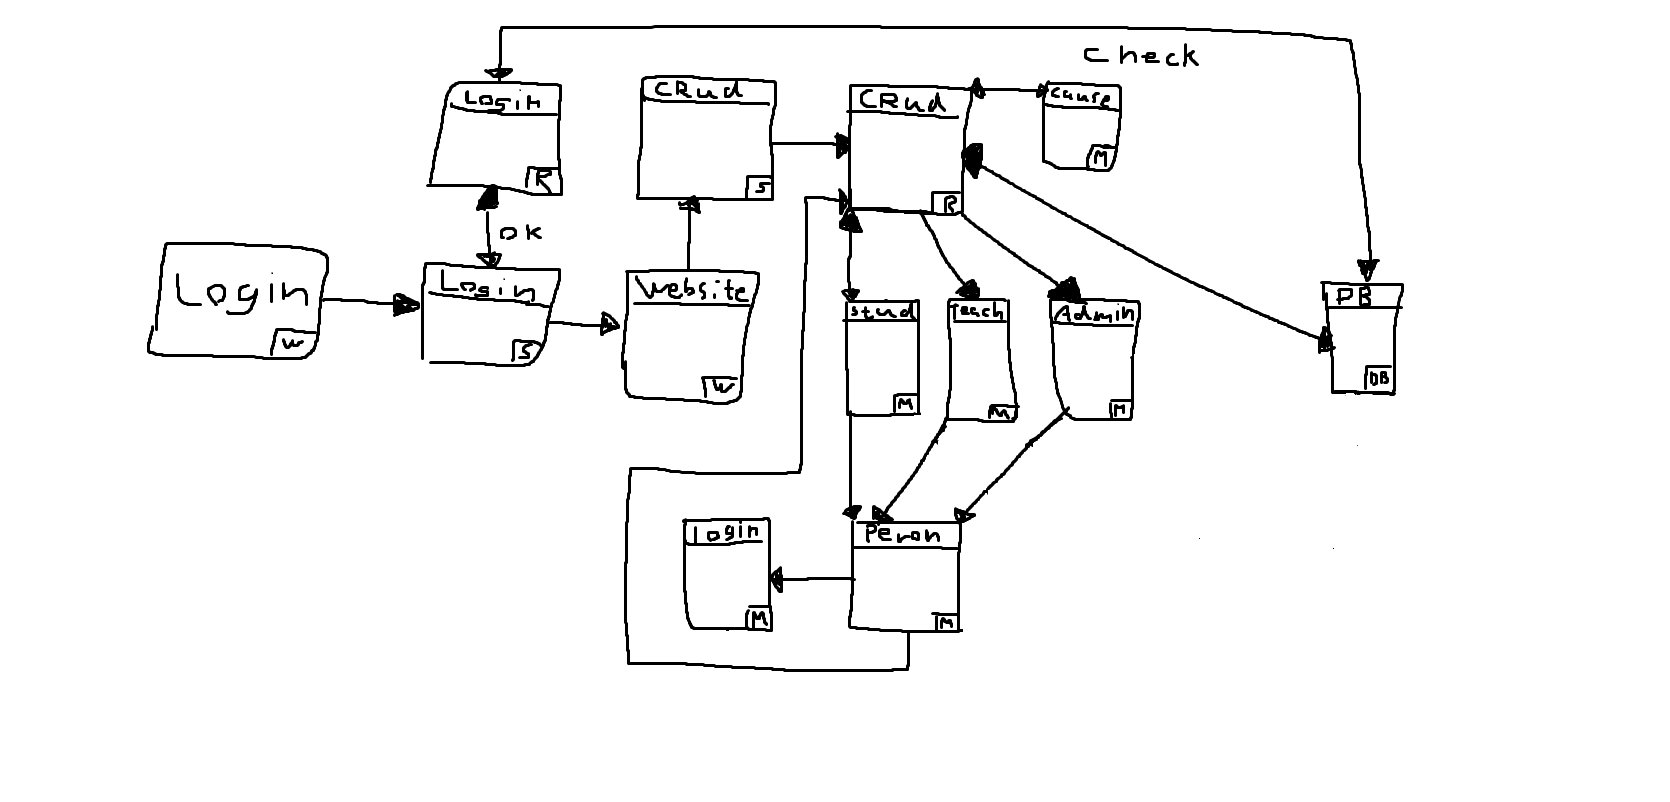 check
Login
R
CRud
S
CRud
R
cause
M
OK
Login
W
Login
S
Website
W
stud
M
Teach
M
Admin
M
DB
Login
M
Peron
M